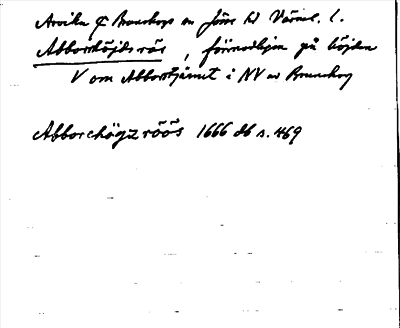 Arvika o Brunskogs sn Jösse hd Värml. l.
Abborrhöjds rös, förmodligen på höjden
V om Abborrtjärnet i NV av Brunskog
Abborehögz röös 1666 db s. 469